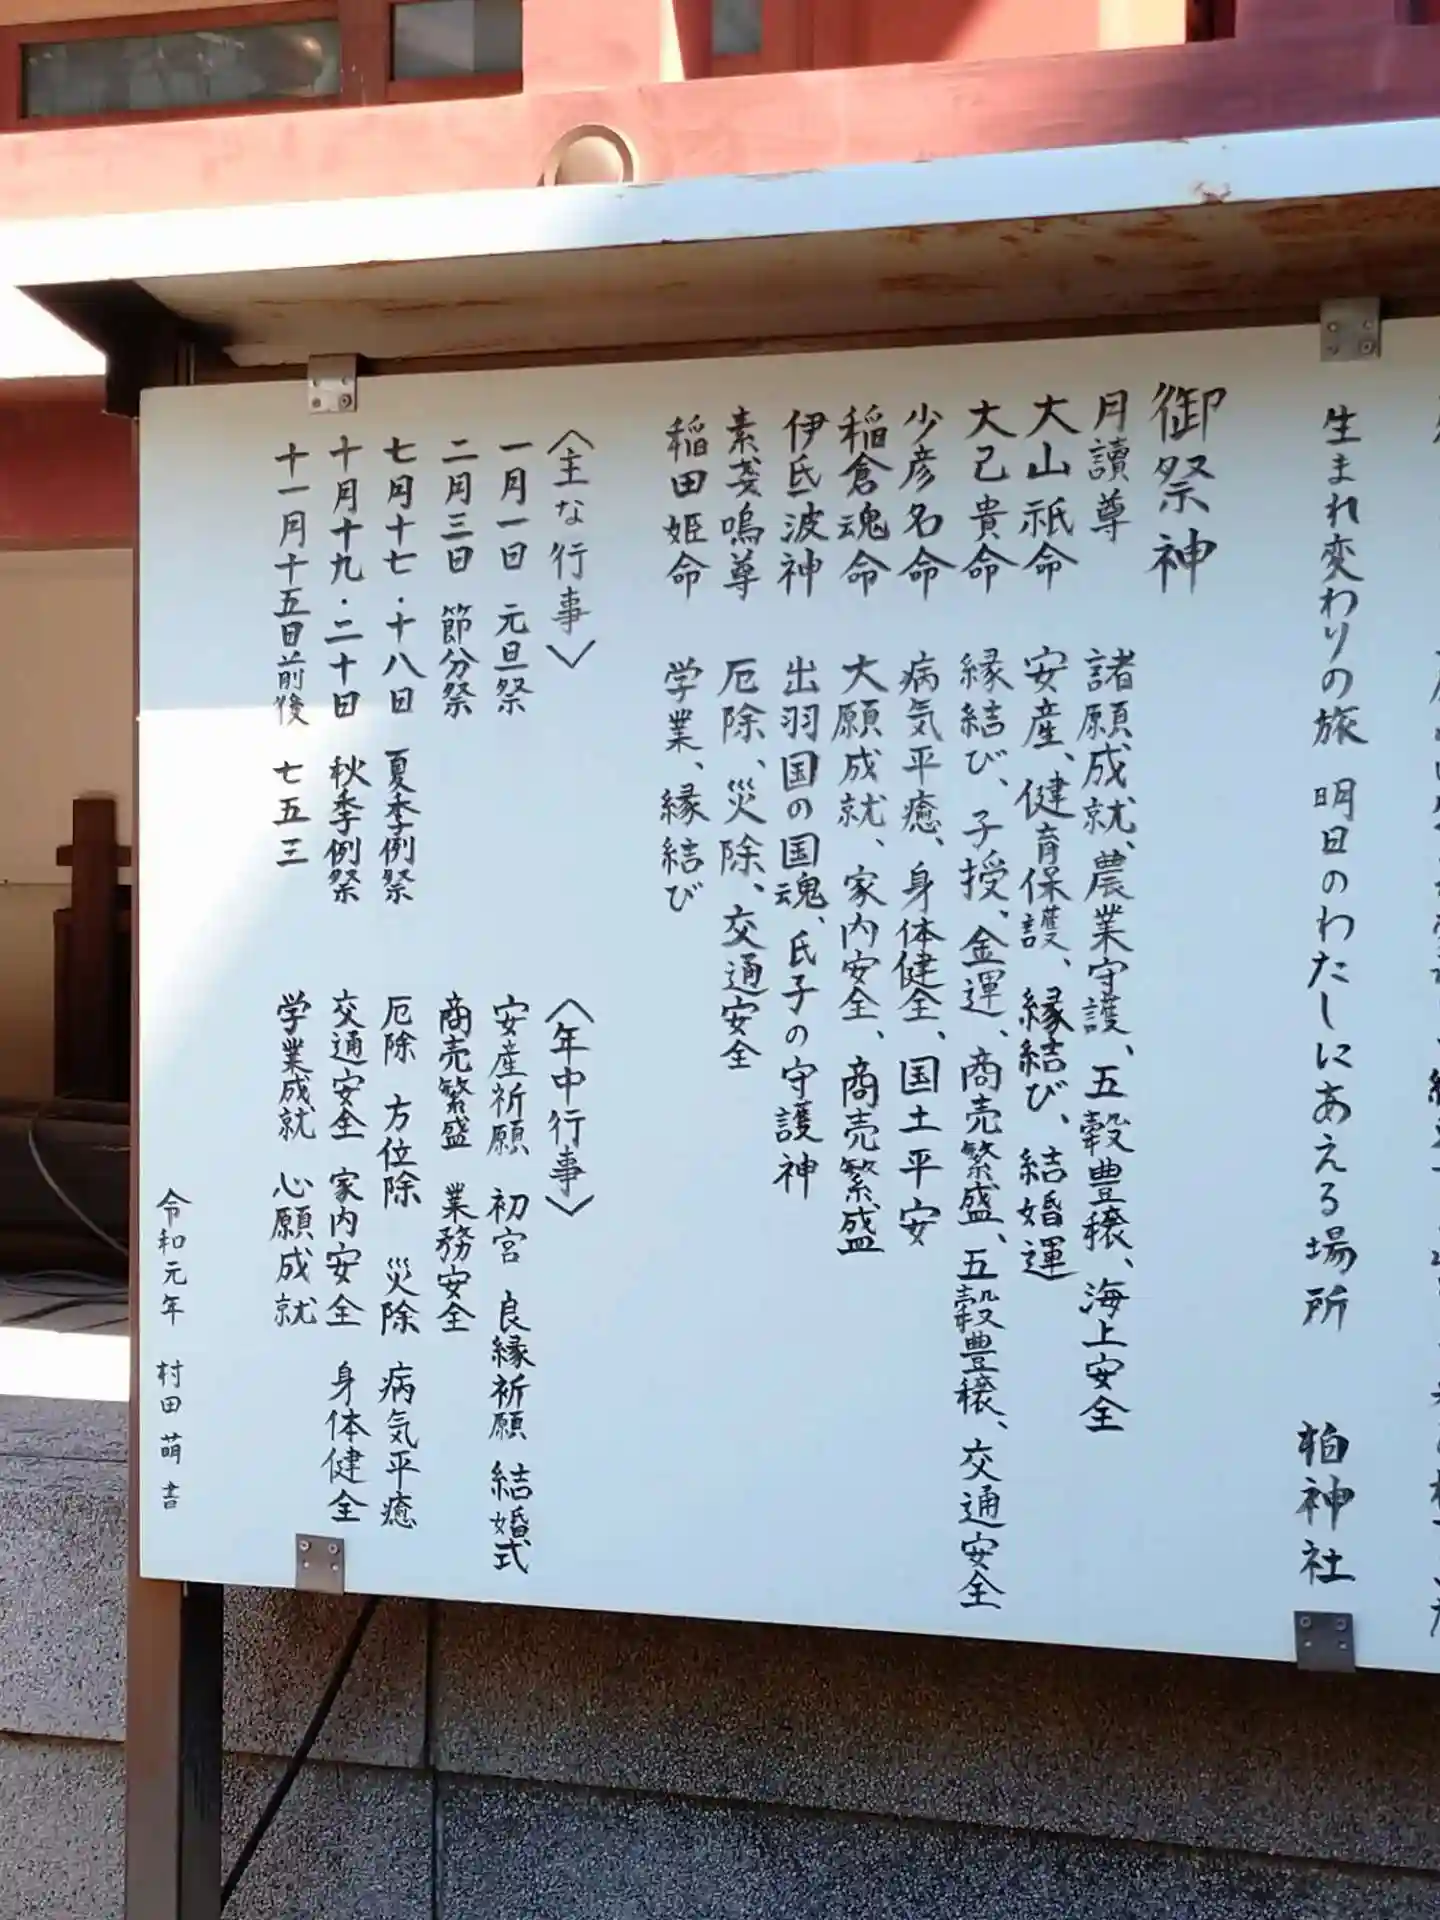 生まれ変わりの旅 明日のわたしにあえる場所 柏神社
御祭神
月讀尊 諸願成就、農業守護、五穀豊穣、海上安全
大山祇命 安産、健育保護、縁結び、結婚運
大己貴命 縁結び、子授、金運、商売繁盛、五穀豊穣、交通安全
少彦名命 病気平癒、身体健全、国土平安
稲倉魂命 大願成就、家内安全、商売繁盛
伊氐波神 出羽国の国魂、氏子の守護神
素戔嗚尊 厄除、災除、交通安全
稲田姫命 学業、縁結び
〈主な行事〉
一月一日 元旦祭
二月三日 節分祭
七月十七・十八日 夏季例祭
十月十九・二十日 秋季例祭
十一月十五日前後 七五三
〈年中行事〉
安産祈願 初宮 良縁祈願 結婚式
商売繁盛 業務安全
厄除 方位除 災除 病気平癒
交通安全 家内安全 身体健全
学業成就 心願成就
令和元年 村田萌書